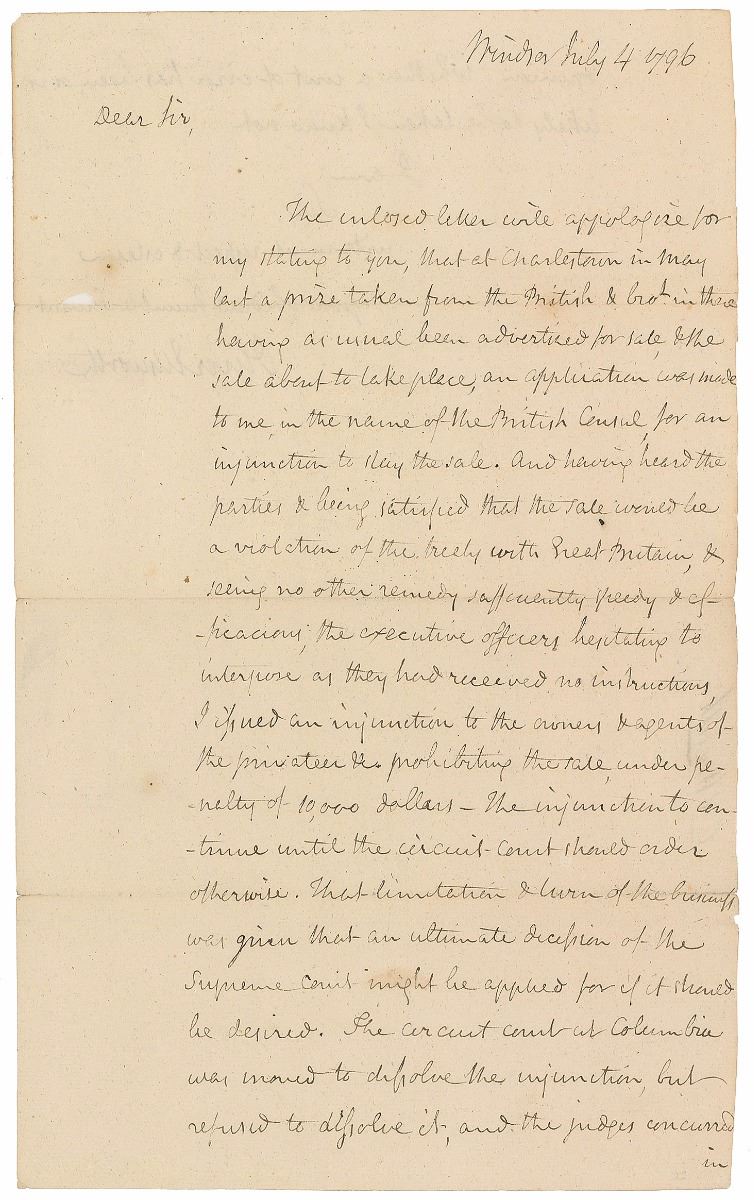 Windsor July 4 1796
Dear Sir,
The inlosed letter will appologize for
my stating to you, that at Charlestown in May
last, a prize taken from the British & brot. in there
having as usual been advertised for sale, & the
sale about to take place, an application was made
to me, in the name of the British Consul, for an
injunction to stay the sale. And having heard the
parties & being satisfied that the sale would be
a violation of the treety with Great Britain, &
seeing no other remedy suffuently speedy & ef-
-ficacious, the executive officers hesitating to
interpose as they had received no instructions,
I issued an injunction to the owners & agents of
the privateer &c. prohibiting the sale, under pe-
-nalty of 10,000 dollars — The injunction to con-
-tinue until the circuit court should order
otherwise. That limitation & turn of the business
was given that an ultimate decission of the
Supreme court might be applied for if it should
be desired. The circuit court at Columbia
was moved to dissolve the injunction, but
refused to dissolve it, and the judges concurred
in